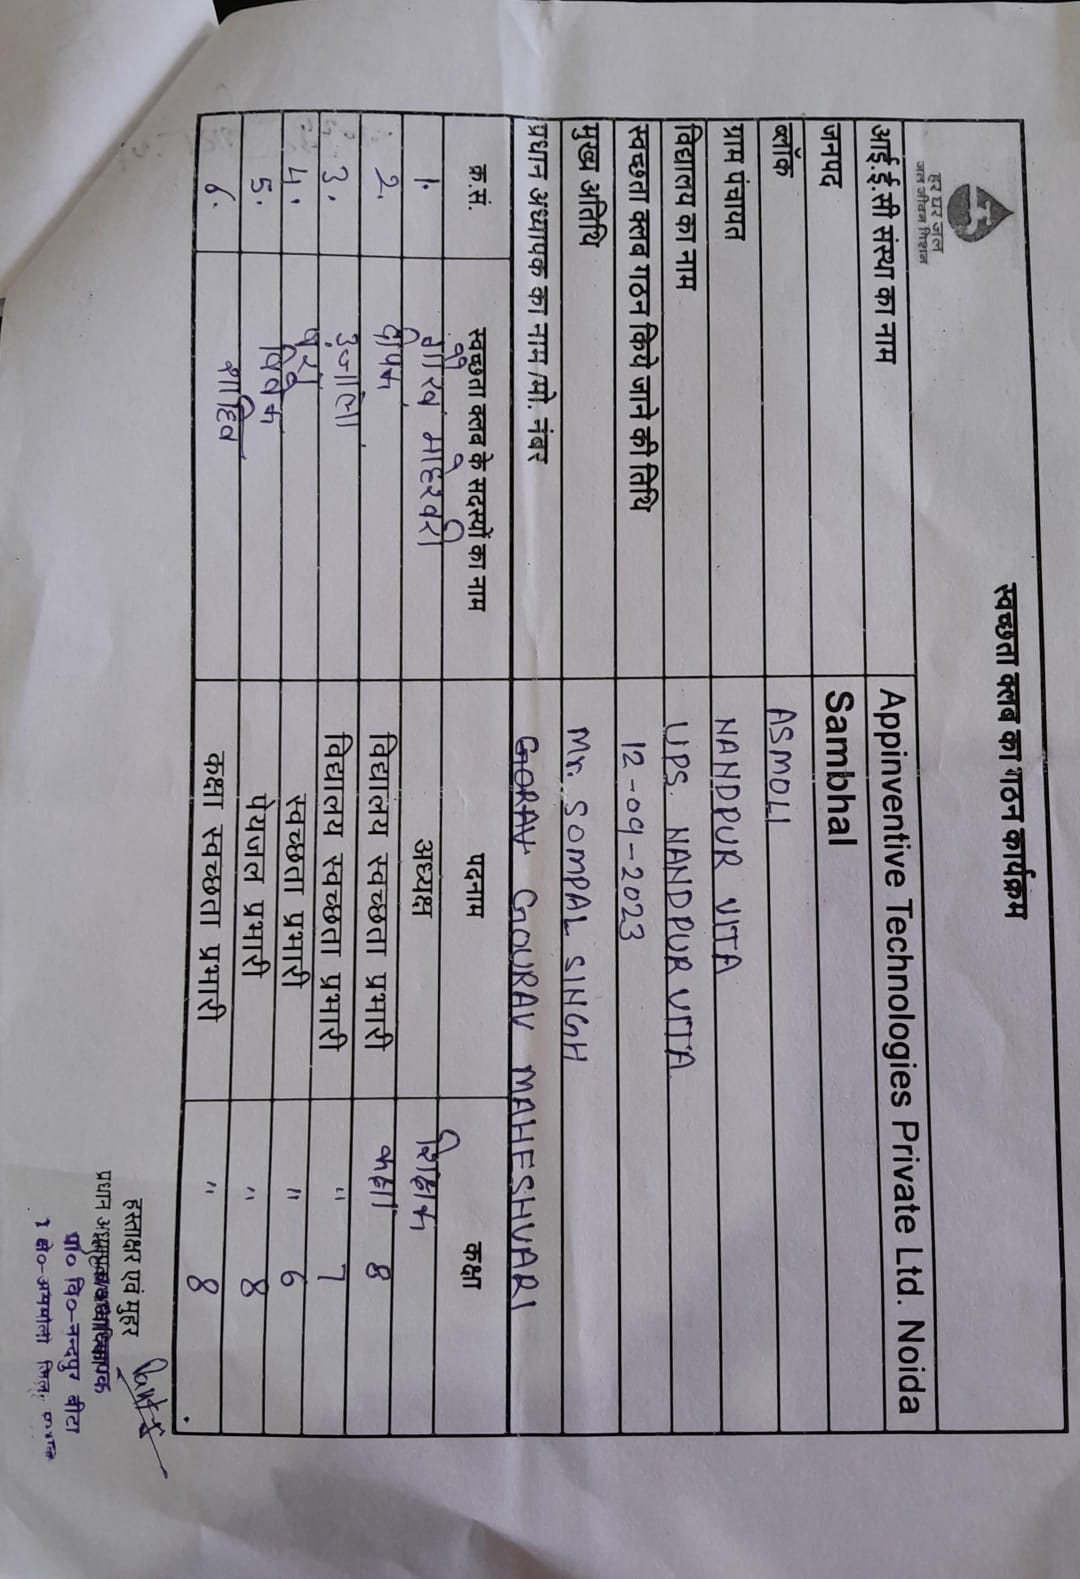 हर घर जल
जल जीवन मिशन
स्वच्छता क्लब का गठन कार्यक्रम
आई.ई.सी संस्था का नाम Appinventive Technologies Private Ltd. Noida
जनपद Sambhal
ब्लॉक ASMOLI
ग्राम पंचायत NANDPUR VITA
विद्यालय का नाम UPS. NANDPUR VITA
स्वच्छता क्लब गठन किये जाने की तिथि 12-09-2023
मुख्य अतिथि Mr. SOMPAL SINGH
प्रधान अध्यापक का नाम /मो. नंबर GORAV GOURAV MAHESHVARI
क्र.सं. स्वच्छता क्लब के सदस्यों का नाम पदनाम कक्षा
1. गौरव माहेश्वरी अध्यक्ष शिक्षक
2. दीपक विद्यालय स्वच्छता प्रभारी कक्षा 8
3. उजाला विद्यालय स्वच्छता प्रभारी " 7
4. स्वच्छता प्रभारी " 6
5. विवेक पेयजल प्रभारी " 8
6. साहिब कक्षा स्वच्छता प्रभारी " 8
हस्ताक्षर एवं मुहर
प्रधान
वि०-नन्दपुर बीटा
क्षे०-असमोली